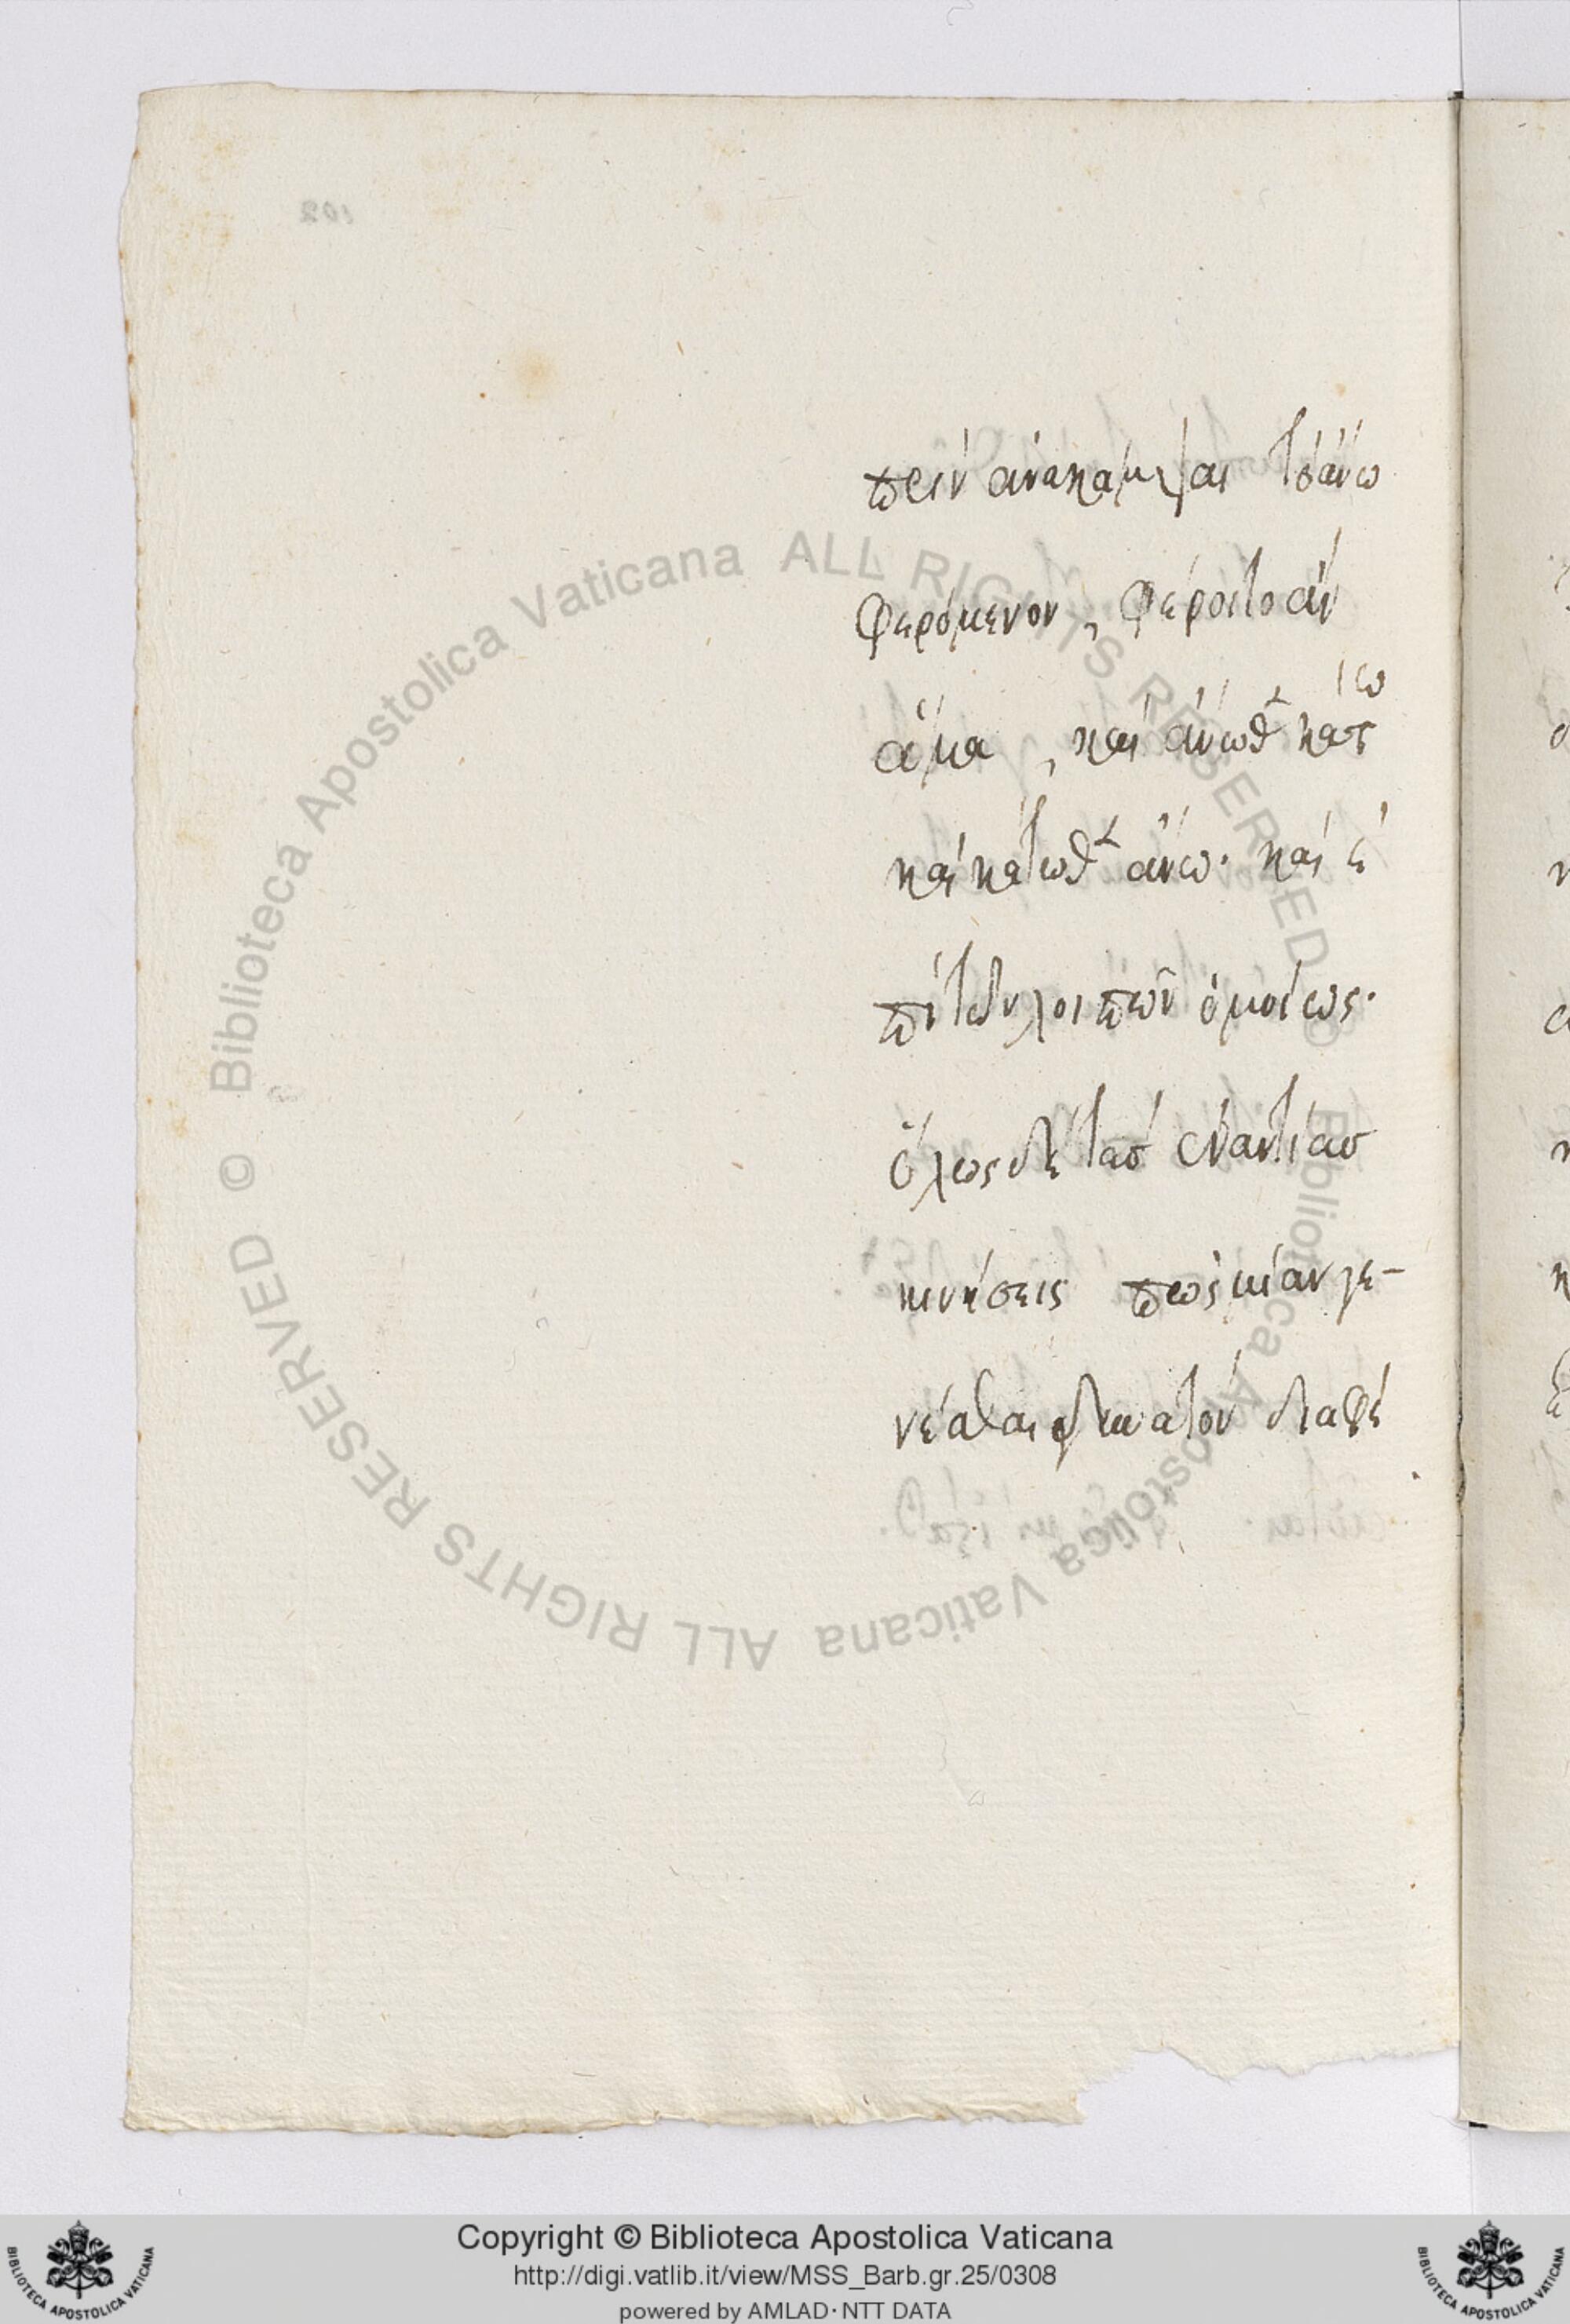 πρὶν ἀνακάμψαι τὸ ἄνω
φερόμενον, φέροιτο ἄν
ἅμα, καὶ ἄνωθεν κάτω
καὶ κάτωθεν ἄνω· καὶ ἐ
πὶ τῶν λοιπῶν ὁμοίως·
ὅλως δὲ τὰς ἐναντίας
κινήσεις πρὸς μίαν γε-
νέσθαι δυνατὸν διαφέ
102
Biblioteca Apostolica Vaticana ALL RIGHTS RESERVED ©
Biblioteca Apostolica Vaticana ALL RIGHTS RESERVED ©
Copyright © Biblioteca Apostolica Vaticana
http://digi.vatlib.it/view/MSS_Barb.gr.25/0308
powered by AMLAD·NTT DATA
BIBLIOTECA APOSTOLICA VATICANA
BIBLIOTECA APOSTOLICA VATICANA